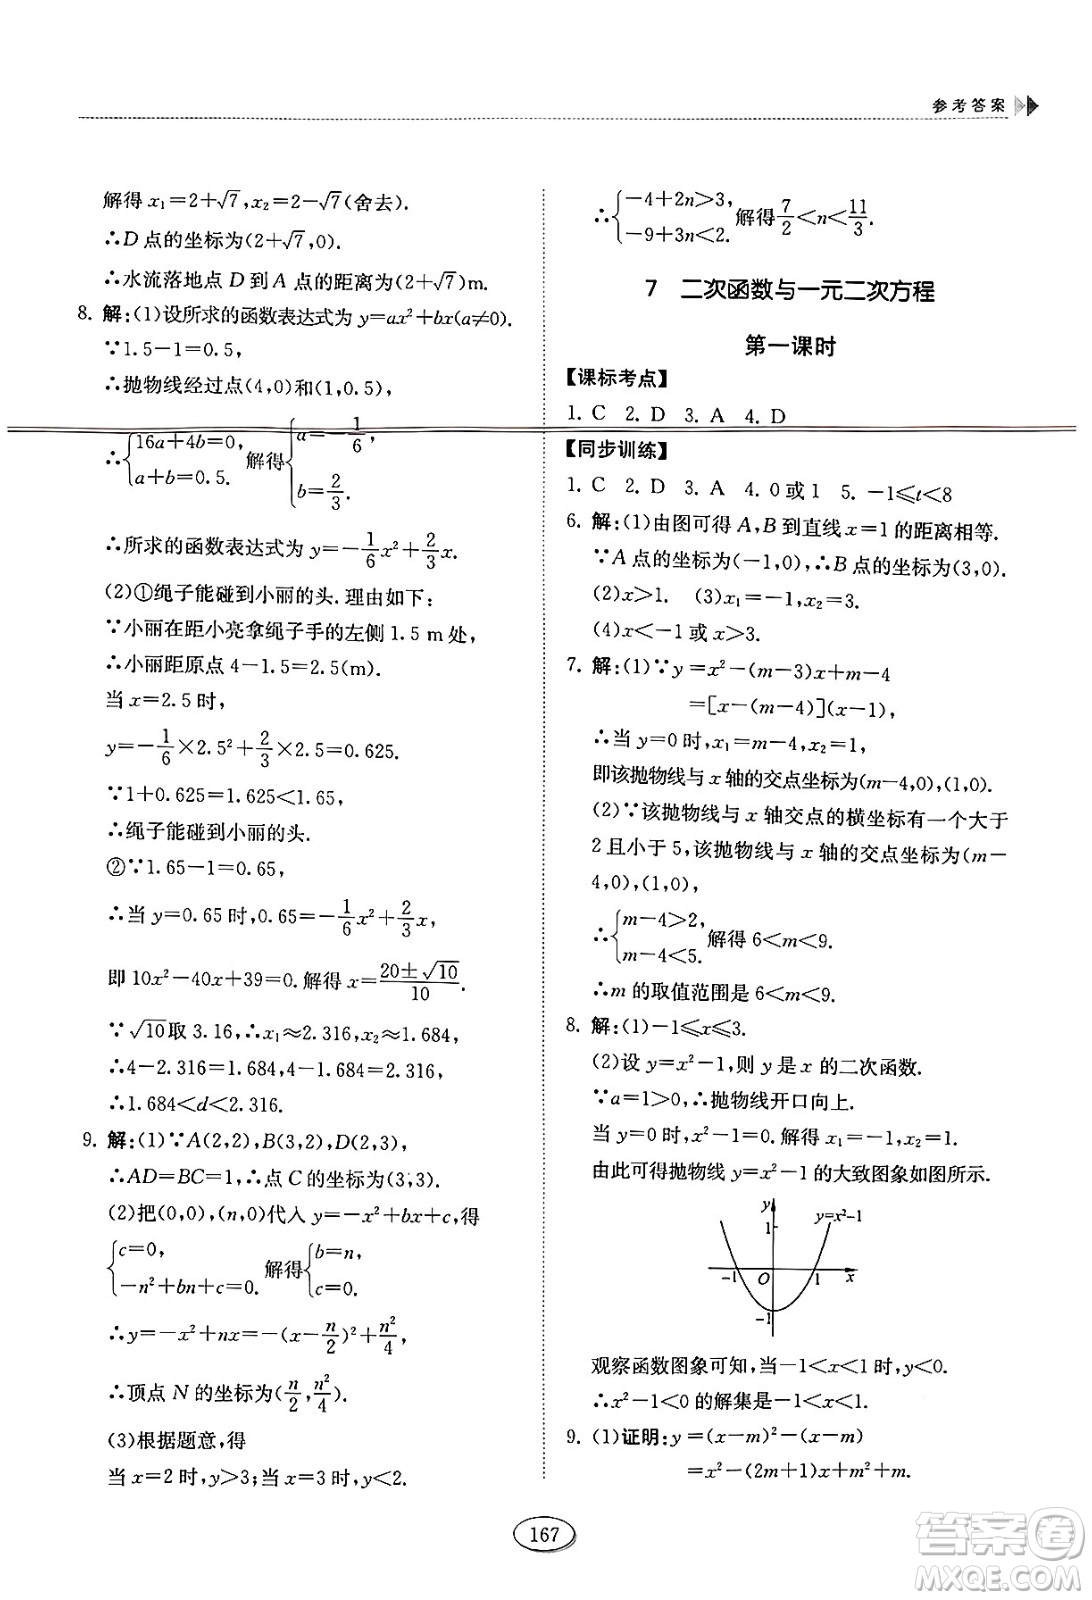 参考答案
解得 x₁=2+√7,x₂=2-√7(舍去).
∴D 点的坐标为(2+√7,0).
∴水流落地点 D 到 A 点的距离为(2+√7)m.
8. 解:(1)设所求的函数表达式为 y=ax²+bx(a≠0).
∵1.5-1=0.5,
∴抛物线经过点(4,0)和(1,0.5),
∴{16a+4b=0, a+b=0.5. 解得{a=-1/6, b=2/3.
∴所求的函数表达式为 y=-1/6x²+2/3x.
(2)①绳子能碰到小丽的头.理由如下:
∵小丽在距小亮拿绳子手的左侧 1.5 m 处,
∴小丽距原点 4-1.5=2.5(m).
当 x=2.5 时,
y=-1/6×2.5²+2/3×2.5=0.625.
∵1+0.625=1.625<1.65,
∴绳子能碰到小丽的头.
②∵1.65-1=0.65,
∴当 y=0.65 时,0.65=-1/6x²+2/3x,
即 10x²-40x+39=0.解得 x=(20±√10)/10.
∵√10取 3.16,∴x₁≈2.316,x₂≈1.684,
∴4-2.316=1.684,4-1.684=2.316,
∴1.684<d<2.316.
9. 解:(1)∵A(2,2),B(3,2),D(2,3),
∴AD=BC=1,∴点 C 的坐标为(3,3).
(2)把(0,0),(n,0)代入 y=-x²+bx+c,得
{c=0, -n²+bn+c=0. 解得{b=n, c=0.
∴y=-x²+nx=-(x-n/2)²+n²/4,
∴顶点 N 的坐标为(n/2,n²/4).
(3)根据题意,得
当 x=2 时,y>3;当 x=3 时,y<2.
∴{-4+2n>3, -9+3n<2. 解得7/2<n<11/3.
7 二次函数与一元二次方程
第一课时
【课标考点】
1. C 2. D 3. A 4. D
【同步训练】
1. C 2. D 3. A 4. 0或1 5. -1≤t<8
6. 解:(1)由图可得 A,B 到直线 x=1 的距离相等.
∵A 点的坐标为(-1,0),∴B 点的坐标为(3,0).
(2)x>1. (3)x₁=-1,x₂=3.
(4)x<-1 或 x>3.
7. 解:(1)∵y=x²-(m-3)x+m-4
=[x-(m-4)](x-1),
∴当 y=0 时,x₁=m-4,x₂=1,
即该抛物线与 x 轴的交点坐标为(m-4,0),(1,0).
(2)∵该抛物线与 x 轴交点的横坐标有一个大于
2且小于5,该抛物线与 x 轴的交点坐标为(m-
4,0),(1,0),
∴{m-4>2, m-4<5. 解得 6<m<9.
∴m 的取值范围是 6<m<9.
8. 解:(1)-1≤x≤3.
(2)设 y=x²-1,则 y 是 x 的二次函数.
∵a=1>0,∴抛物线开口向上.
当 y=0 时,x²-1=0.解得 x₁=-1,x₂=1.
由此可得抛物线 y=x²-1 的大致图象如图所示.
y
1
y=x²-1
-1 O 1 x
-1
观察函数图象可知,当-1<x<1 时,y<0.
∴x²-1<0 的解集是-1<x<1.
9. (1)证明:y=(x-m)²-(x-m)
=x²-(2m+1)x+m²+m.
167
答案圈
MXQE.COM